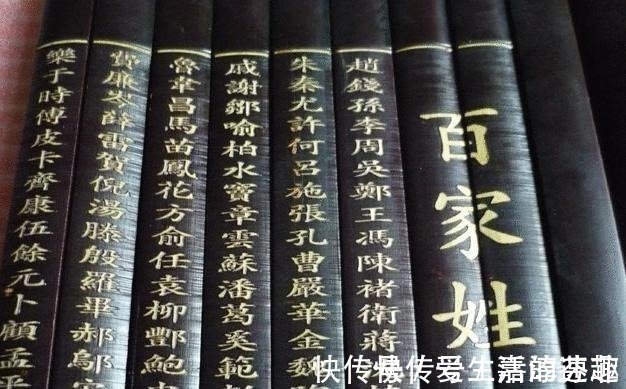 百家姓
趙錢孫李周吳鄭王馮陳褚衛蔣
朱秦尤許何呂施張孔曹嚴華金魏
戚謝鄒喻柏水竇章雲蘇潘葛奚範
魯韋昌馬苗鳳花方俞任袁柳酆鮑史
費廉岑薛雷賀倪湯滕殷羅畢郝鄔安
樂于時傅皮卡齊康伍餘元卜顧孟平
快传号